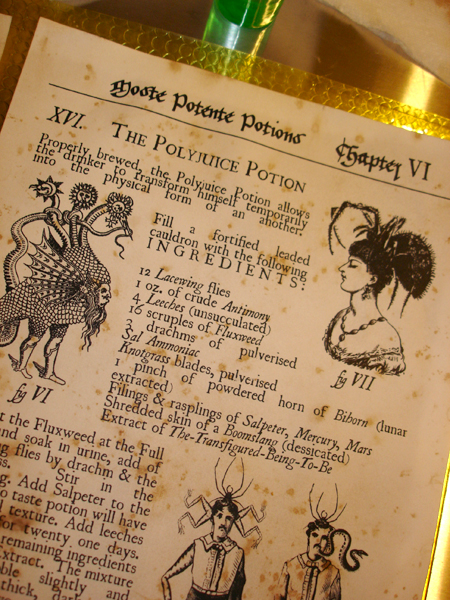 Moste Potente Potions Chapter VI
XVI. THE POLYJUICE POTION
Properly brewed, the Polyjuice Potion allows
the drinker to transform himself temporarily
into the physical form of an another.
Fill a fortified leaded
cauldron with the following
INGREDIENTS:
12 Lacewing flies
1 oz. of crude Antimony
4 Leeches (unsucculated)
16 scruples of Fluxweed
3 drachms of pulverised
Sal Ammoniac
Knotgrass blades, pulverised
1 pinch of powdered horn of Bihorn (lunar
extracted)
Filings & rasplings of Salpeter, Mercury, Mars
Shredded skin of a Boomslang (dessicated)
Extract of The-Transfigured-Being-To-Be
fig VI
fig VII
the Fluxweed at the Full
and soak in urine, add of
flies by drachm & the
Stir in the
Add Salpeter to the
taste potion will have
texture. Add leeches
for twenty one days.
remaining ingredients
Extract. The mixture
slightly and
thick,